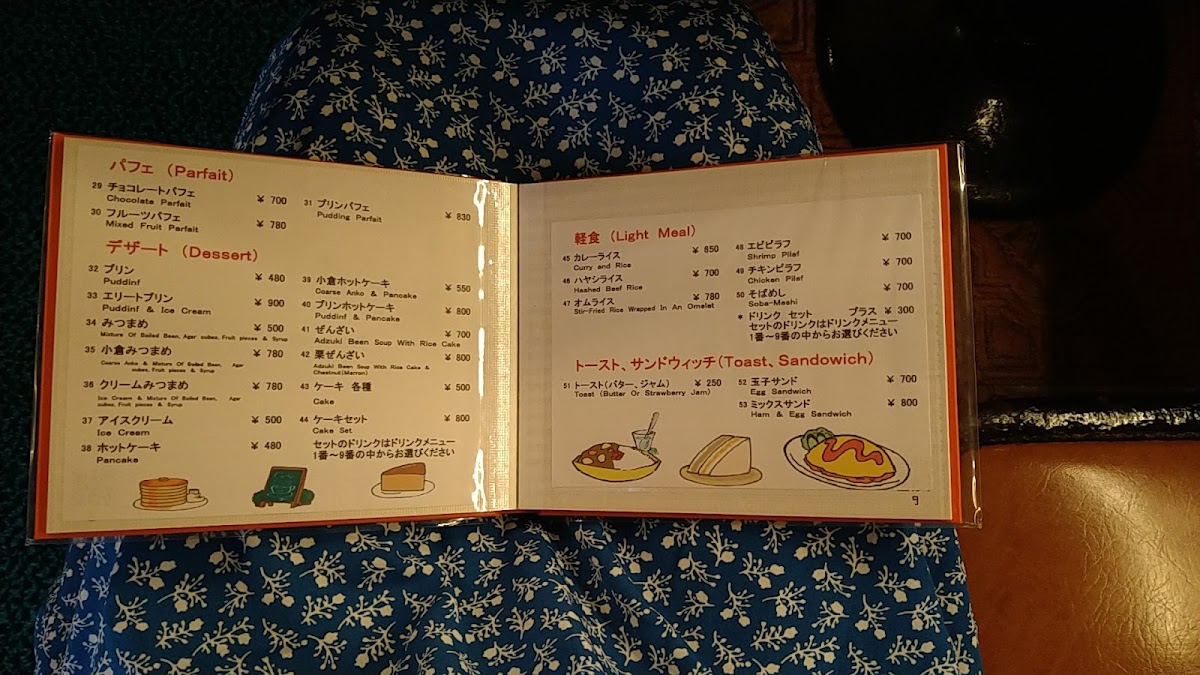 パフェ (Parfait)
29 チョコレートパフェ ¥ 700
Chocolate Parfait
30 フルーツパフェ ¥ 780
Mixed Fruit Parfait
31 プリンパフェ ¥ 830
Pudding Parfait
デザート (Dessert)
32 プリン ¥ 480
Puddinf
33 エリートプリン ¥ 900
Puddinf & Ice Cream
34 みつまめ ¥ 500
Mixture Of Bailed Bean, Agar cubes, Fruit pieces & Syrup
35 小倉みつまめ ¥ 780
Coarse Anko & Mixture Of Bailed Bean, Agar
cubes, Fruit pieces & Syrup
36 クリームみつまめ ¥ 780
Ice Cream & Mixture Of Bailed Bean, Agar
cubes, Fruit pieces & Syrup
37 アイスクリーム ¥ 500
Ice Cream
38 ホットケーキ ¥ 480
Pancake
39 小倉ホットケーキ ¥ 550
Coarse Anko & Pancake
40 プリンホットケーキ ¥ 800
Puddinf & Pancake
41 ぜんざい ¥ 700
Adzuki Been Soup With Rice Cake
42 栗ぜんざい ¥ 800
Adzuki Been Soup With Rice Cake &
Chestnut(Marron)
43 ケーキ 各種 ¥ 500
Cake
44 ケーキセット ¥ 800
Cake Set
セットのドリンクはドリンクメニュー
1番〜9番の中からお選びください
軽食 (Light Meal)
45 カレーライス ¥ 650
Curry and Rice
46 ハヤシライス ¥ 700
Hashed Beef Rice
47 オムライス ¥ 780
Stir-Fried Rice Wrapped In An Omelat
48 エビピラフ ¥ 700
Shrimp Pilaf
49 チキンピラフ ¥ 700
Chicken Pilaf
50 そばめし ¥ 700
Soba-Meshi
* ドリンク セット プラス ¥ 300
セットのドリンクはドリンクメニュー
1番〜9番の中からお選びください
トースト、サンドウィッチ(Toast、Sandowich)
51 トースト(バター、ジャム) ¥ 250
Toast (Buttar Or Strawberry Jam)
52 玉子サンド ¥ 700
Egg Sandwich
53 ミックスサンド ¥ 800
Ham & Egg Sandwich
9